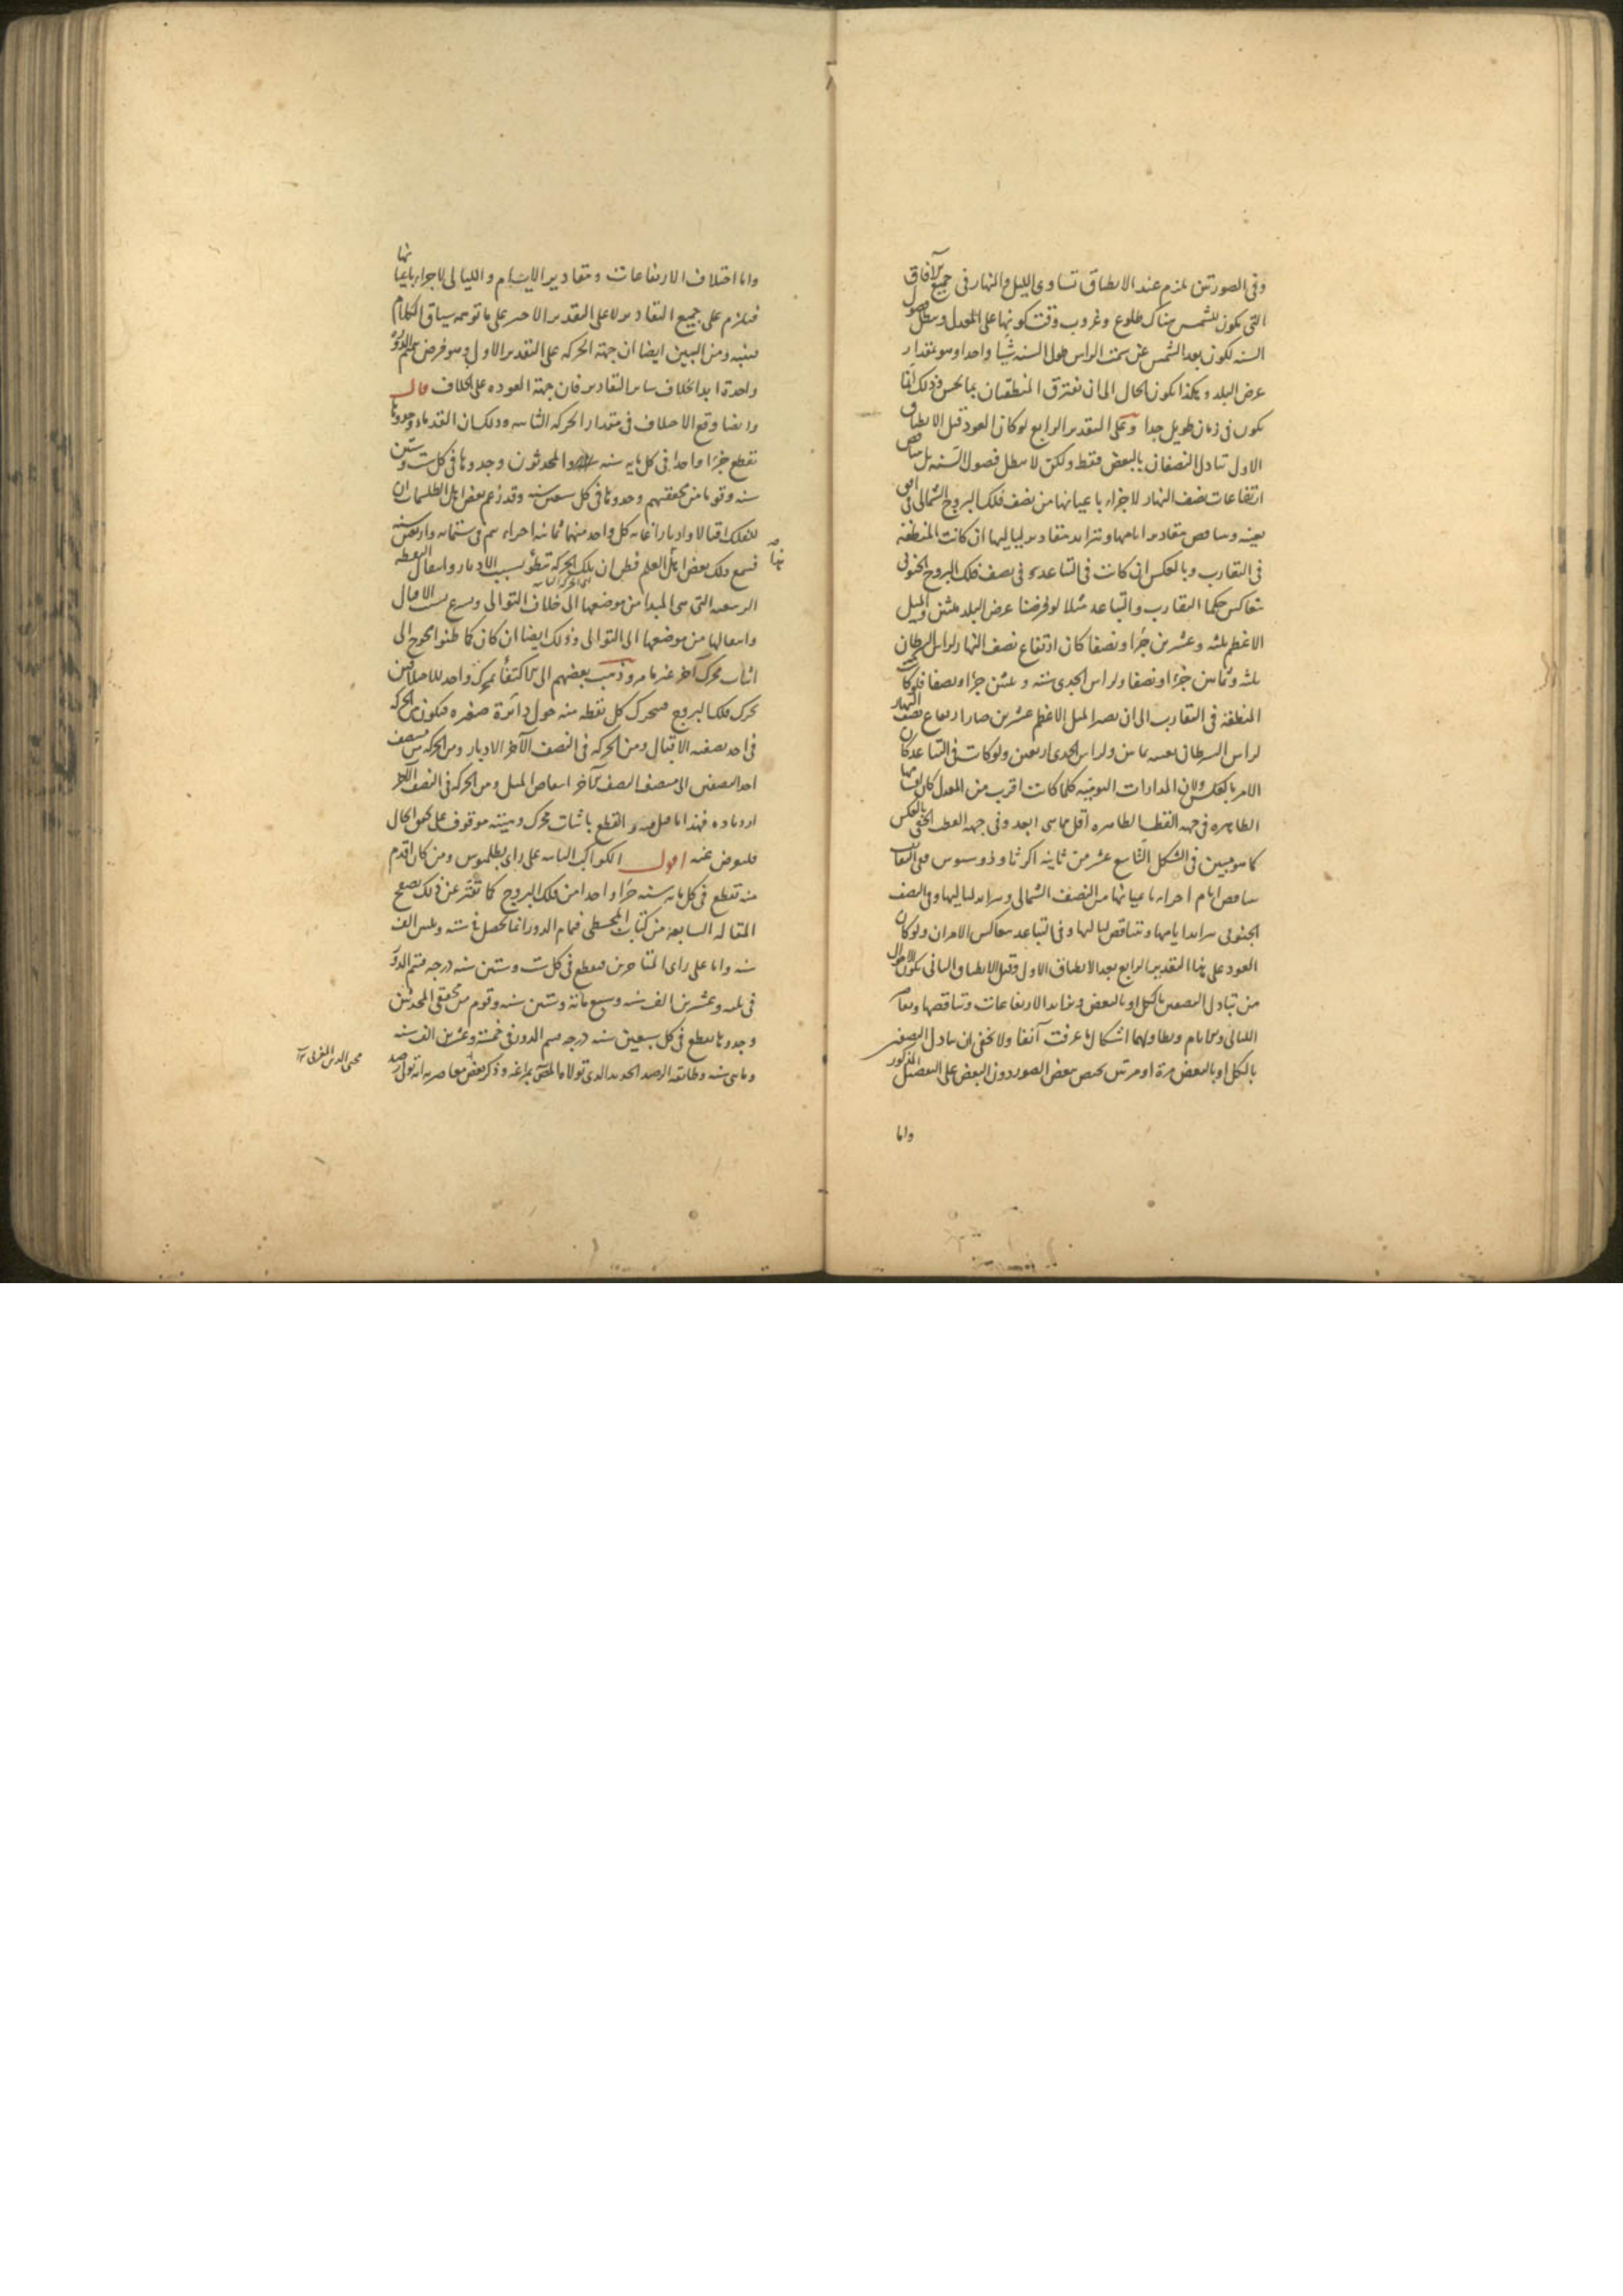 وفى الصورتين يلزم عند الانطباق تساوى الليل والنهار فى جميع الآفاق
التى يكون للشمس هناك طلوع وغروب وقت كونها على المعدل وسطل فصول
السنه لكون بعد الشمس عن سمت الراس طول السنه شيا واحدا وهو بمقدار
عرض البلد وهكذا يكون الحال الى ان تفترق المنطقتان بما يحس وذلك انما
يكون فى زمان طويل جدا وعلى التقدير الرابع لو كان العود قبل الانطباق
الاول تبادل النصفان بالبعض فقط ولكن لا سطل فصول السنه بل ساقص
ارتفاعات نصف النهار لاجزاء باعيانها من نصف فلك البروج الشمالى فى افق
بعينه وساقص مقادير ايامها وتتزايد مقادير لياليها ان كانت المنطقة
فى التقارب وبالعكس ان كانت فى التباعد وفى نصف فلك البروج الجنوبى
تعاكس حكما التقارب والتباعد مثلا لو فرضنا عرض البلد ثلثين والميل
الاعظم ثلثه وعشرين جزا ونصفا كان ارتفاع نصف النهار لراس السرطان
ثلثه وثمانين جزا ونصفا ولراس الجدى سته وثلثين جزا ونصفا فلو كانت
المنطقة فى التقارب الى ان يصير الميل الاعظم عشرين صار ارتفاع نصف النهار
لراس السرطان بعينه ثمانين ولراس الجدى اربعين ولو كانت فى التباعد كان
الامر بالعكس ولان المدارات اليومية كلما كانت اقرب من المعدل كان
الظاهره فى جهه القطب الظاهره اقل مما هى ابعد وفى جهه القطب الخفى بالعكس
كما هو مبين فى الشكل التاسع عشر من ثانية اكر ثاوذوسيوس فلى التقارب
ساقص ايام اجزاء باعيانها من النصف الشمالى وتزايد لياليها وفى النصف
الجنوبى تزايد ايامها وتتناقص لياليها وفى التباعد تعاكس الامران ولو كان
العود على هذا التقدير الرابع بعد الانطباق الاول وقبل الانطباق الثانى يكون الاحوال
من تبادل النصفين بالكل او بالبعض وتزايد الارتفاعات وتناقصها
الليالى والايام وتطاولهما اشكال ما عرفت آنفا ولا يخفى ان تبادل النصفين
بالكل او بالبعض مرة او مرتين يختص ببعض الصور دون البعض على التفصيل المذكور
واما
واما اختلاف الارتفاعات ومقادير الايام والليالى لاجزاء باعيانها
فيلزم على جميع التقادير لا على التقدير الاخير على ما توهمه سياق الكلام
فتنبه ومن البين ايضا ان جهة الحركه على التقدير الاول وهو فرض تتمم الدوره
واحدة ابدا بخلاف سائر التقادير فان جهة العوده على الخلاف قال
وايضا وقع الاختلاف فى مقدار الحركه الثانيه وذلك ان القدماء وجدوها
تقطع جزا واحدا فى كل مايه سنه والمحدثون وجدوها فى كل ست وستين
سنه وقوما من محققيهم وجدوها فى كل سبعين سنه وقد زعم بعض اهل الطلسمات ان
للفلك اقبالا وادبارا غايه كل واحد منهما ثمانيه اجزاء يتم فى ستمائه واربعين سنه
فسمع ذلك بعض اهل العلم فظن ان تلك الحركه تبطؤ بسبب الادبار وانتقال النقطه
الربيعيه التى هى المبدا من موضعها الى خلاف التوالى وتسرع بسبب الاقبال
وانتقالها من موضعها الى التوالى وذلك ايضا ان كان كما ظنوا يحوج الى
اثبات محرك آخر غير ما مر وذهب بعضهم الى الاكتفاء بمحرك واحد للاختلافين
يحرك فلك البروج فيتحرك كل نقطه منه حول دائرة صغيره فيكون من الحركه
فى احد نصفيه الاقبال ومن الحركه فى النصف الآخر الادبار ومن الحركه من منتصف
احد النصفين الى منتصف النصف الآخر انتقاص الميل ومن الحركه فى النصف الآخر
ازدياده فهذا ما قيل فيه والقطع باثبات محرك وهيئته موقوف على تحقق الحال
فليعرض عنه اقول الكواكب الثابته على راى بطلميوس ومن كان اقدم
منه تقطع فى كل مايه سنه جزا واحدا من فلك البروج كما تعثر عن ذلك بتصفح
المقاله السابعه من كتاب المجسطى فتمام الدور انما يحصل فى سته وثلثين الف
سنه واما على راى المتاخرين فتقطع فى كل ست وستين سنه درجه فتتم الدور
فى ثلثه وعشرين الف سنه وسبع مائة وستين سنه وقوم من محققى المحدثين
وجدوها تقطع فى كل سبعين سنه درجه فيتم الدور فى خمسة وعشرين الف سنه
ومائتى سنه وطابقه الرصد الجديد الذى تولاه المص بمراغه وذكر بعض معاصريه انه تولى رصد
محيى الدين المغربى ١٢